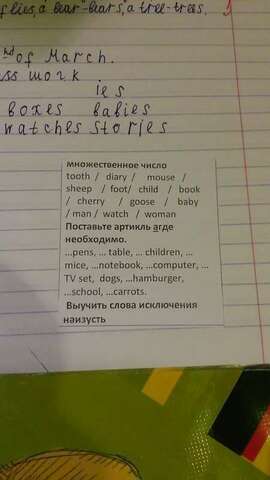 flies, a bear-bears, a tree-trees.
of March.
ss work.
ies
boxes babies
watches stories
множественное число
tooth / diary / mouse /
sheep / foot/ child / book
/ cherry / goose / baby
/ man / watch / woman
Поставьте артикль aгде
необходимо.
...pens, ... table, ... children, ...
mice, ...notebook, ...computer, ...
TV set, dogs, ...hamburger,
...school, ...carrots.
Выучить слова исключения
наизусть